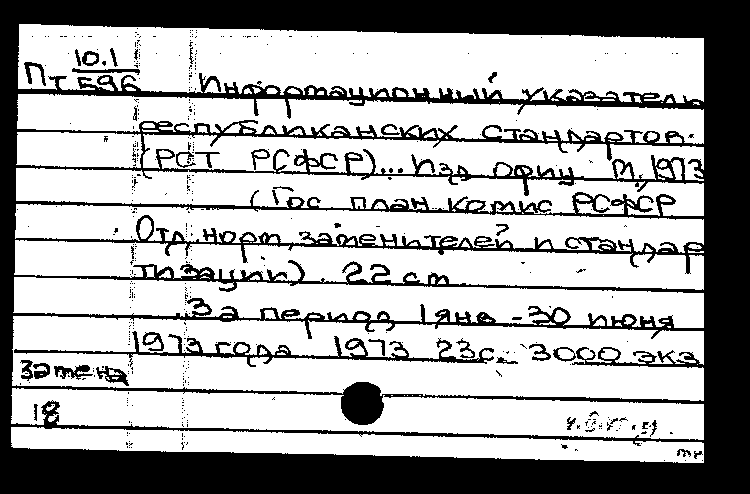 Пт 10.1/596 Информационный указатель
республиканских стандартов.
(РСТ РСФСР)... Изд. офиц. М., 1973
(Гос план комис РСФСР
Отд. норм, заменителей и стандар
тизации). 22 см.
За период 1 янв - 30 июня
1973 года 1973 23с. 3000 экз
замена
18